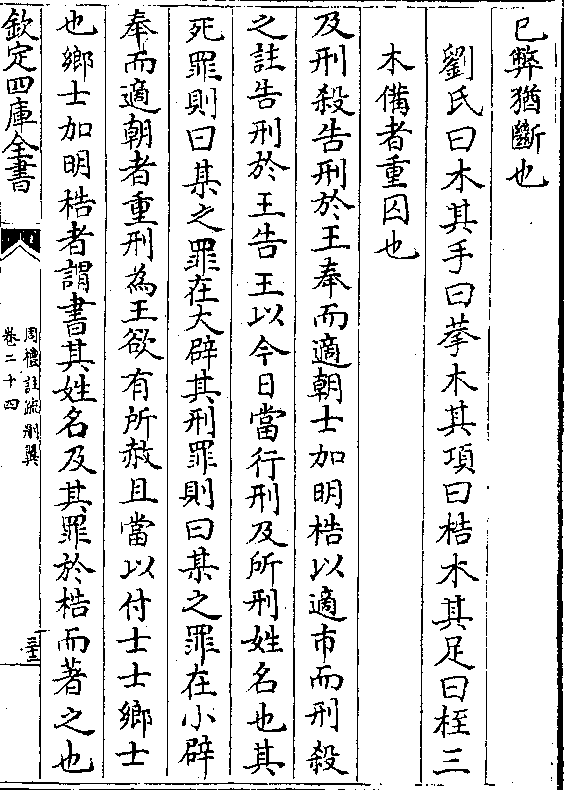 已弊猶斷也
劉氏曰木其手曰拲木其項曰梏木其足曰桎三
木備者重囚也
及刑殺告刑於王奉而適朝士加明梏以適市而刑殺
之註告刑於王告王以今日當行刑及所刑姓名也其
死罪則曰某之罪在大辟其刑罪則曰某之罪在小辟
奉而適朝者重刑為王欲有所赦且當以付士士鄉士
也鄉士加明梏者謂書其姓名及其罪於梏而著之也
欽定四庫全書
周禮註疏刪翼
卷二十四
三十三